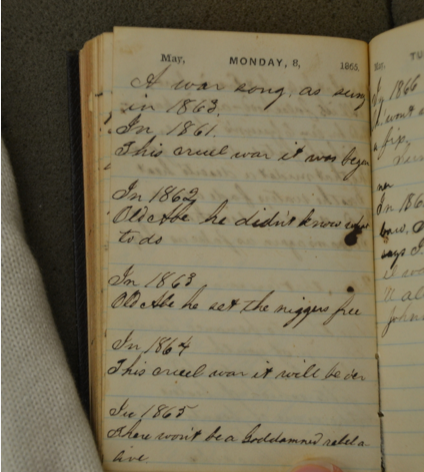 May, MONDAY, 8, 1865.
A war song, as sung
in 1863.
In 1861.
This cruel war it was began
In 1862
Old Abe he didn't know what
to do
In 1863
Old Abe he set the niggers free
In 1864
This cruel war it will be oer
In 1865
There won't be a Goddamned rebel a
live.
1866
wont
a fix,
In 186
says I
John